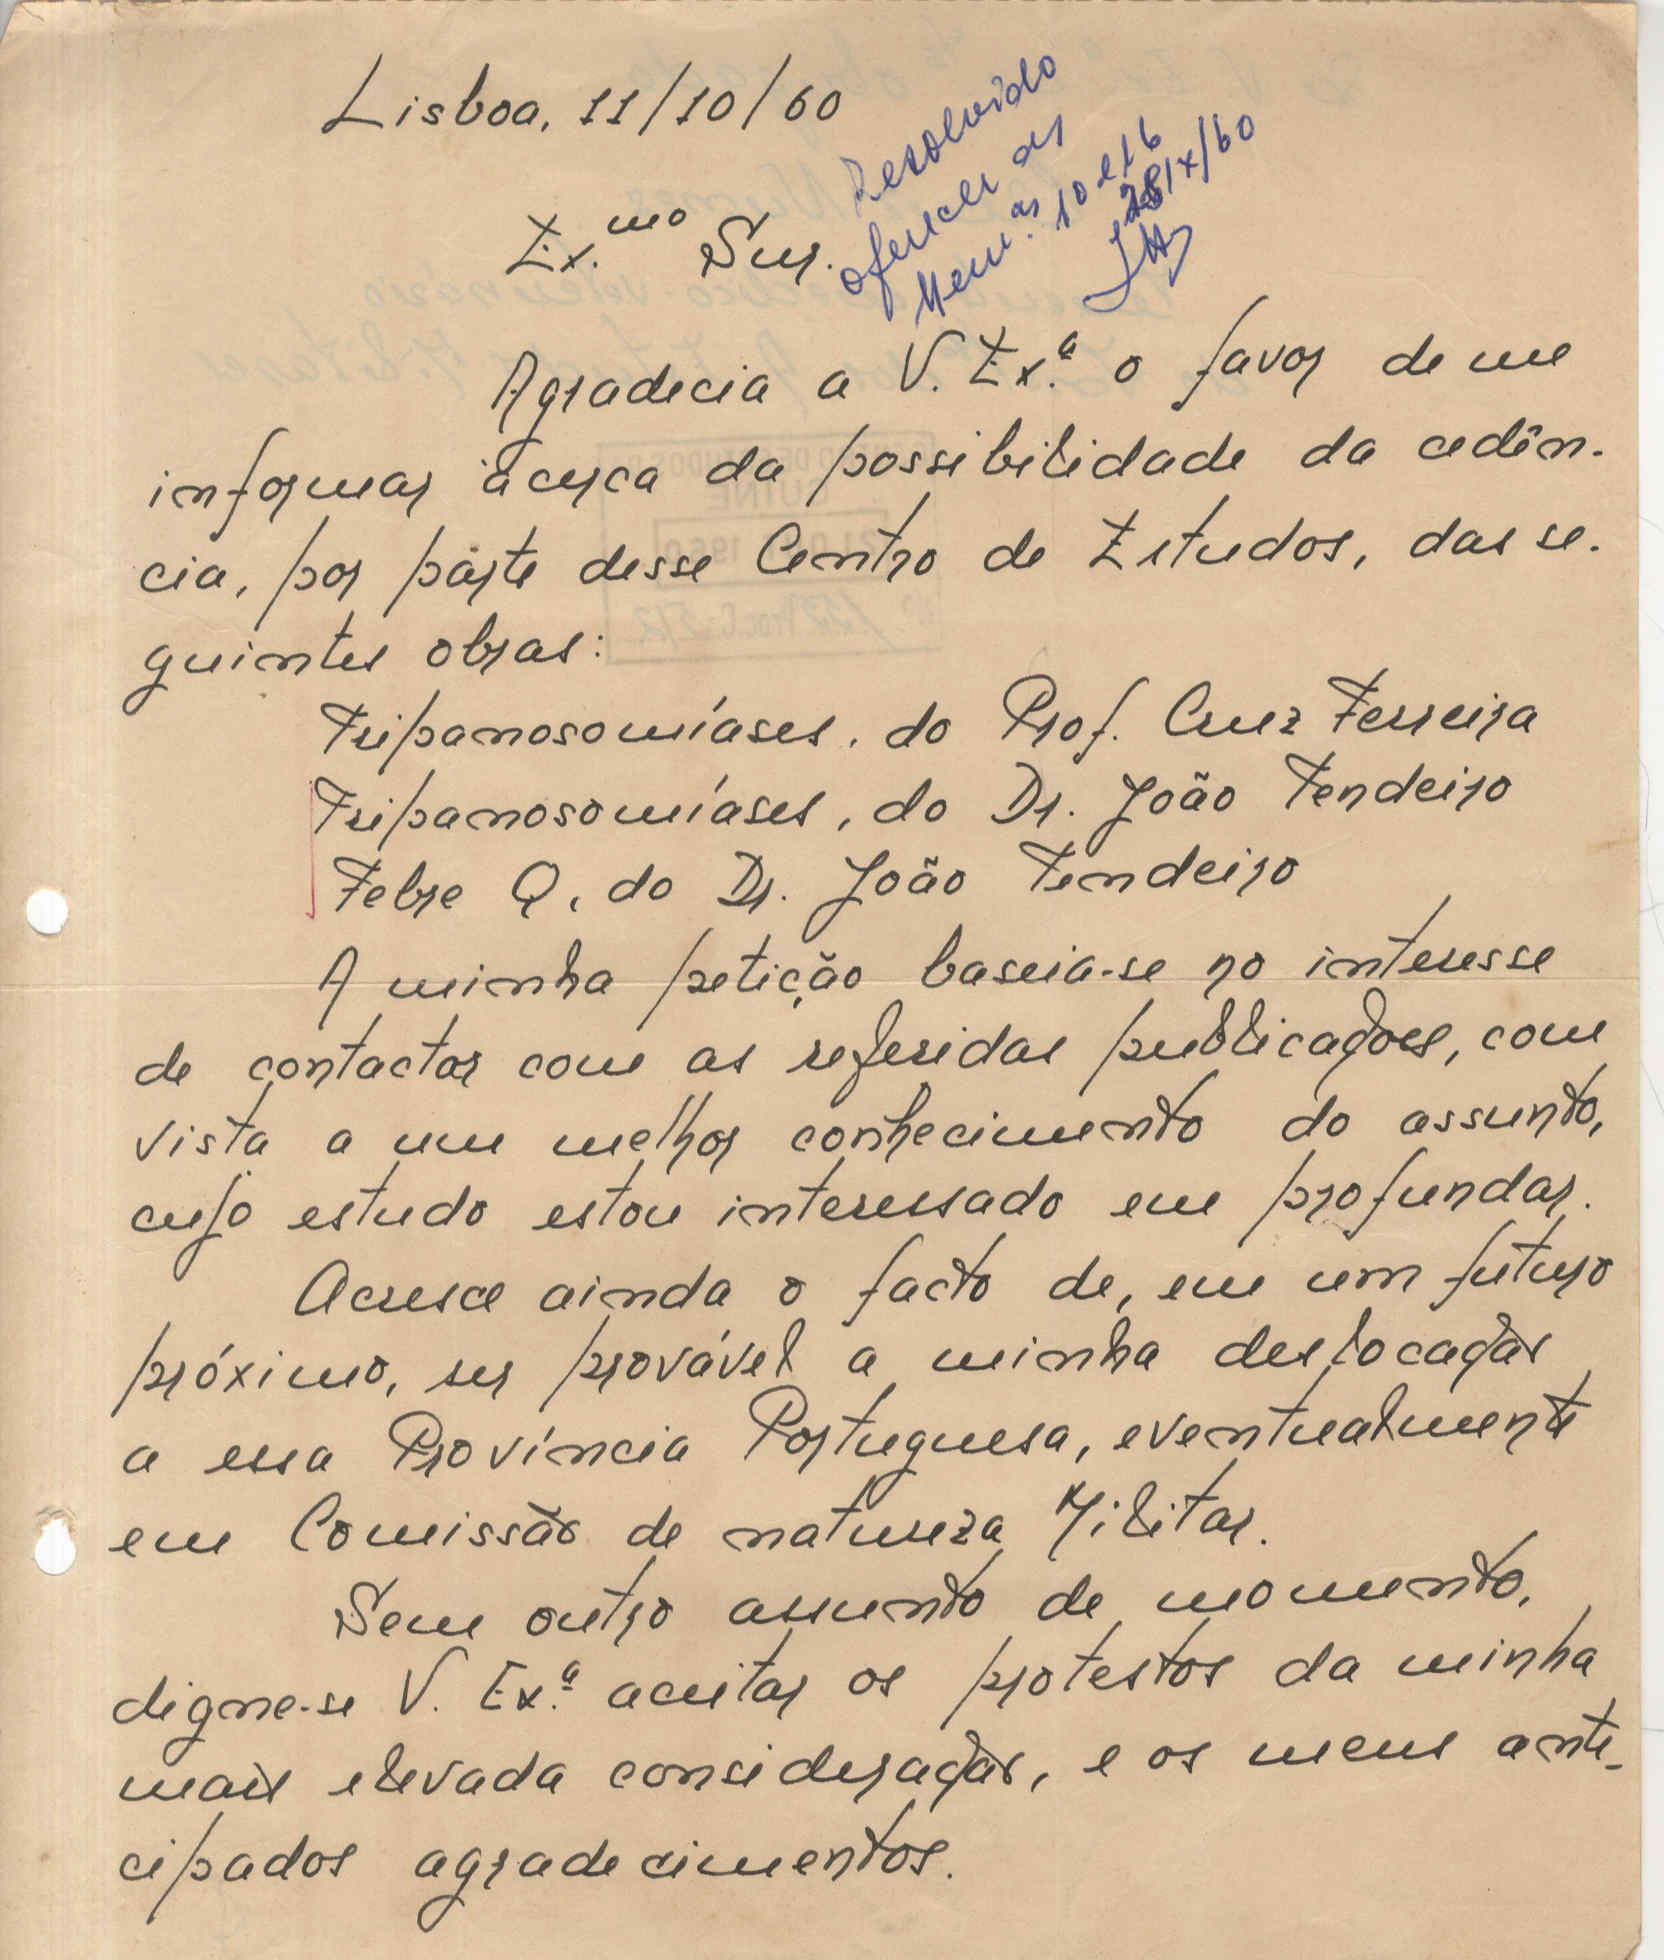 Lisboa, 11/10/60
Resolvido
oferecer as
Mem.as 10 e 16
28/X/60
Ex.mo Snr.
Agradecia a V. Ex.ª o favor de me
informar àcerca da possibilidade da cedên-
cia, por parte desse Centro de Estudos, das se-
guintes obras:
Tripanosomíases, do Prof. Cruz Ferreira
Tripanosomíases, do Dr. João Tendeiro
Febre Q, do Dr. João Tendeiro
A minha petição baseia-se no interesse
de contactar com as referidas publicações, com
vista a um melhor conhecimento do assunto,
cujo estudo estou interessado em profundar.
Acresce ainda o facto de, em um futuro
próximo, ser provável a minha deslocação
a essa Província Portuguesa, eventualmente
em Comissão de natureza Militar.
Sem outro assunto de momento,
digne-se V. Ex.ª aceitar os protestos da minha
mais elevada consideração, e os meus ante-
cipados agradecimentos.